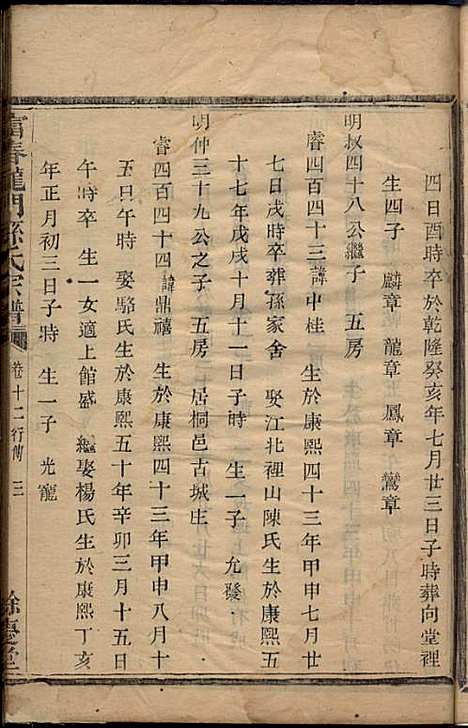 四日酉時卒於乾隆癸亥年七月廿三日子時葬向堂裡
生四子　麟章　龍章　鳳章　鸞章
明叔四十八公繼子　五房
睿四百四十三諱中桂　生於康熙四十三年甲申七月廿
七日戌時卒葬孫家舍　娶江北裡山陳氏生於康熙五
十七年戊戌十月十一日子時　生一子　允發
明仲三十九公之子　五房　居桐邑古城生
睿四百四十四諱鼎禧　生於康熙四十三年甲申八月十
五日午時　娶駱氏生於康熙五十年辛卯三月十五日
午時卒　生一女適上館盛　繼娶楊氏生於康熙丁亥
年正月初三日子時　生一子　光寵
富春龍門孫氏宗譜　卷十二行傳　三　餘慶堂